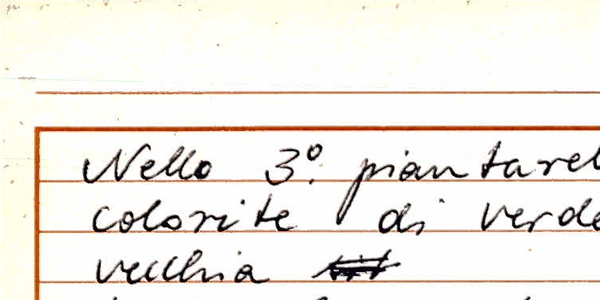 Nello 3º. piantarel
colorite di verde
vecchia